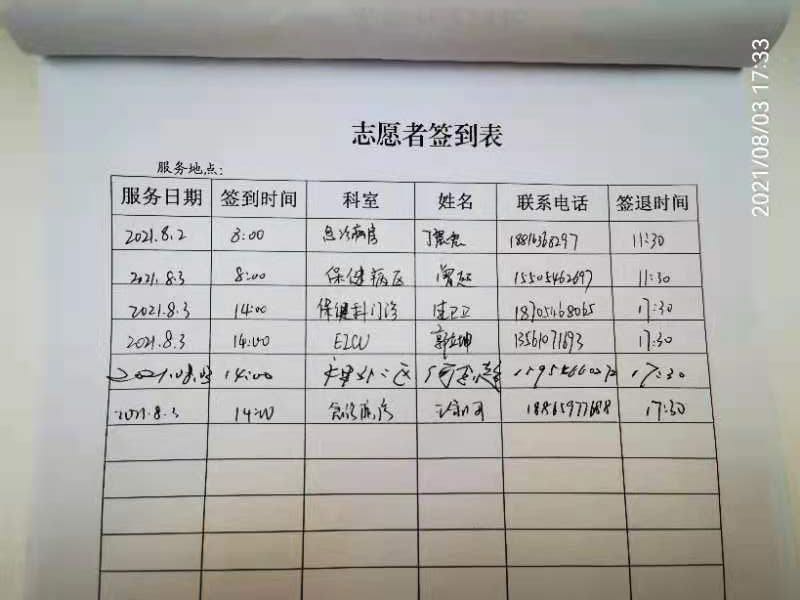 2021/08/03 17:33
志愿者签到表
服务地点:
服务日期 签到时间 科室 姓名 联系电话 签退时间
2021.8.2 8:00 急诊病房 18816368297 11:30
2021.8.3 8:00 保健病区 15505462697 11:30
2021.8.3 14:00 保健科门诊 18705468065 17:30
2021.8.3 14:00 EICU 郭立坤 13561071693 17:30
2021.08.03 14:00 17:30
2021.8.3 14:00 18865977688 17:30